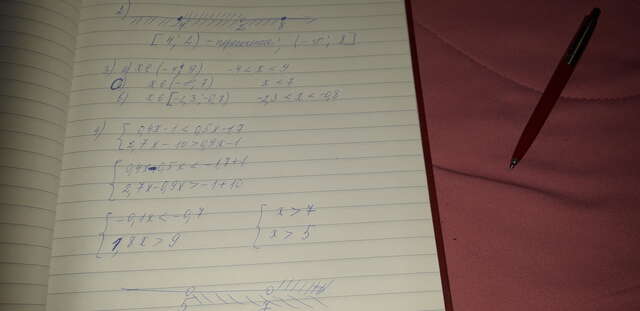 2)
4 2 8
[4; 2) - пересечение; (-∞; 8]
3) а) x∈(-4; 9) -4<x<9
б) x∈(-∞; 7) x<7
в) x∈[-2,3; -0,8) -2,3≤x<-0,8
4) { 0,4x-1<0,5x-1,7
2,7x-10>0,9x-1
{ 0,4x-0,5x<-1,7+1
2,7x-0,9x>-1+10
{ -0,1x<-0,7 { x>7
1,8x>9 x>5
5 7